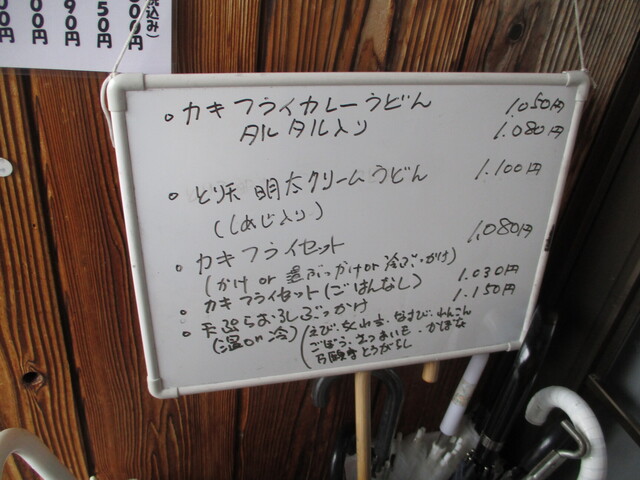 税込み)
000円
50円
90円
00円
0円
。カキフライカレーうどん 1.050円
タルタル入り 1.080円
。とり天 明太クリームうどん 1.100円
(しめじ入り)
。カキフライセット 1.080円
(かけ or 温ぶっかけ or 冷ぶっかけ)
。カキフライセット(ごはんなし) 1.030円
。天ぷらおろしぶっかけ 1.150円
(温or冷) (えび・ちくわ・なすび・れんこん
ごぼう・さつまいも・かぼちゃ
万願寺とうがらし